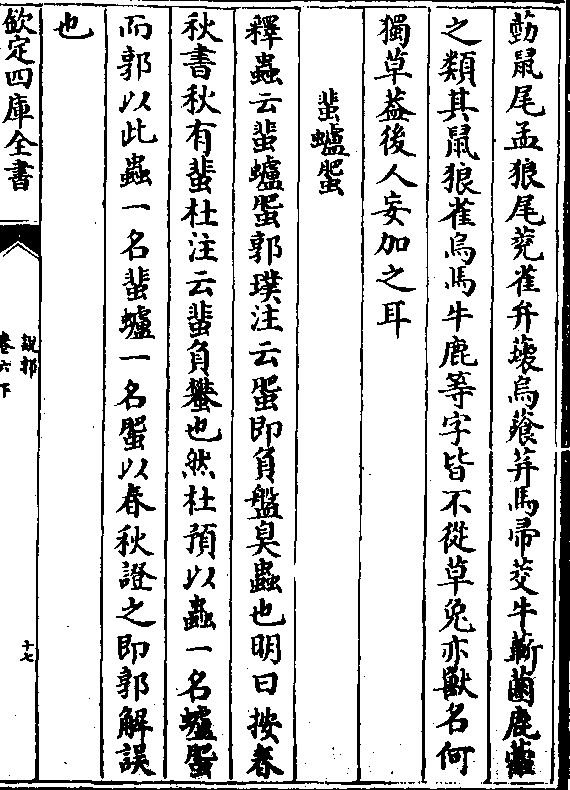 葝鼠尾孟狼尾萖雀弁蘾烏蕵荓馬帚茭牛蘄蔨鹿藿
之類其鼠狼雀烏馬牛鹿等字皆不從草兔亦獸名何
獨草葢後人妄加之耳
蜚蠦蜰
釋蟲云蜚蠦蜰郭璞注云蜰即負盤臭蟲也明曰按春
秋書秋有蜚杜注云蜚負蠜也然杜預以蟲一名蠦蜰
而郭以此蟲一名蜚蠦一名蜰以春秋證之即郭解誤
也
欽定四庫全書
說郛
卷六下
十七